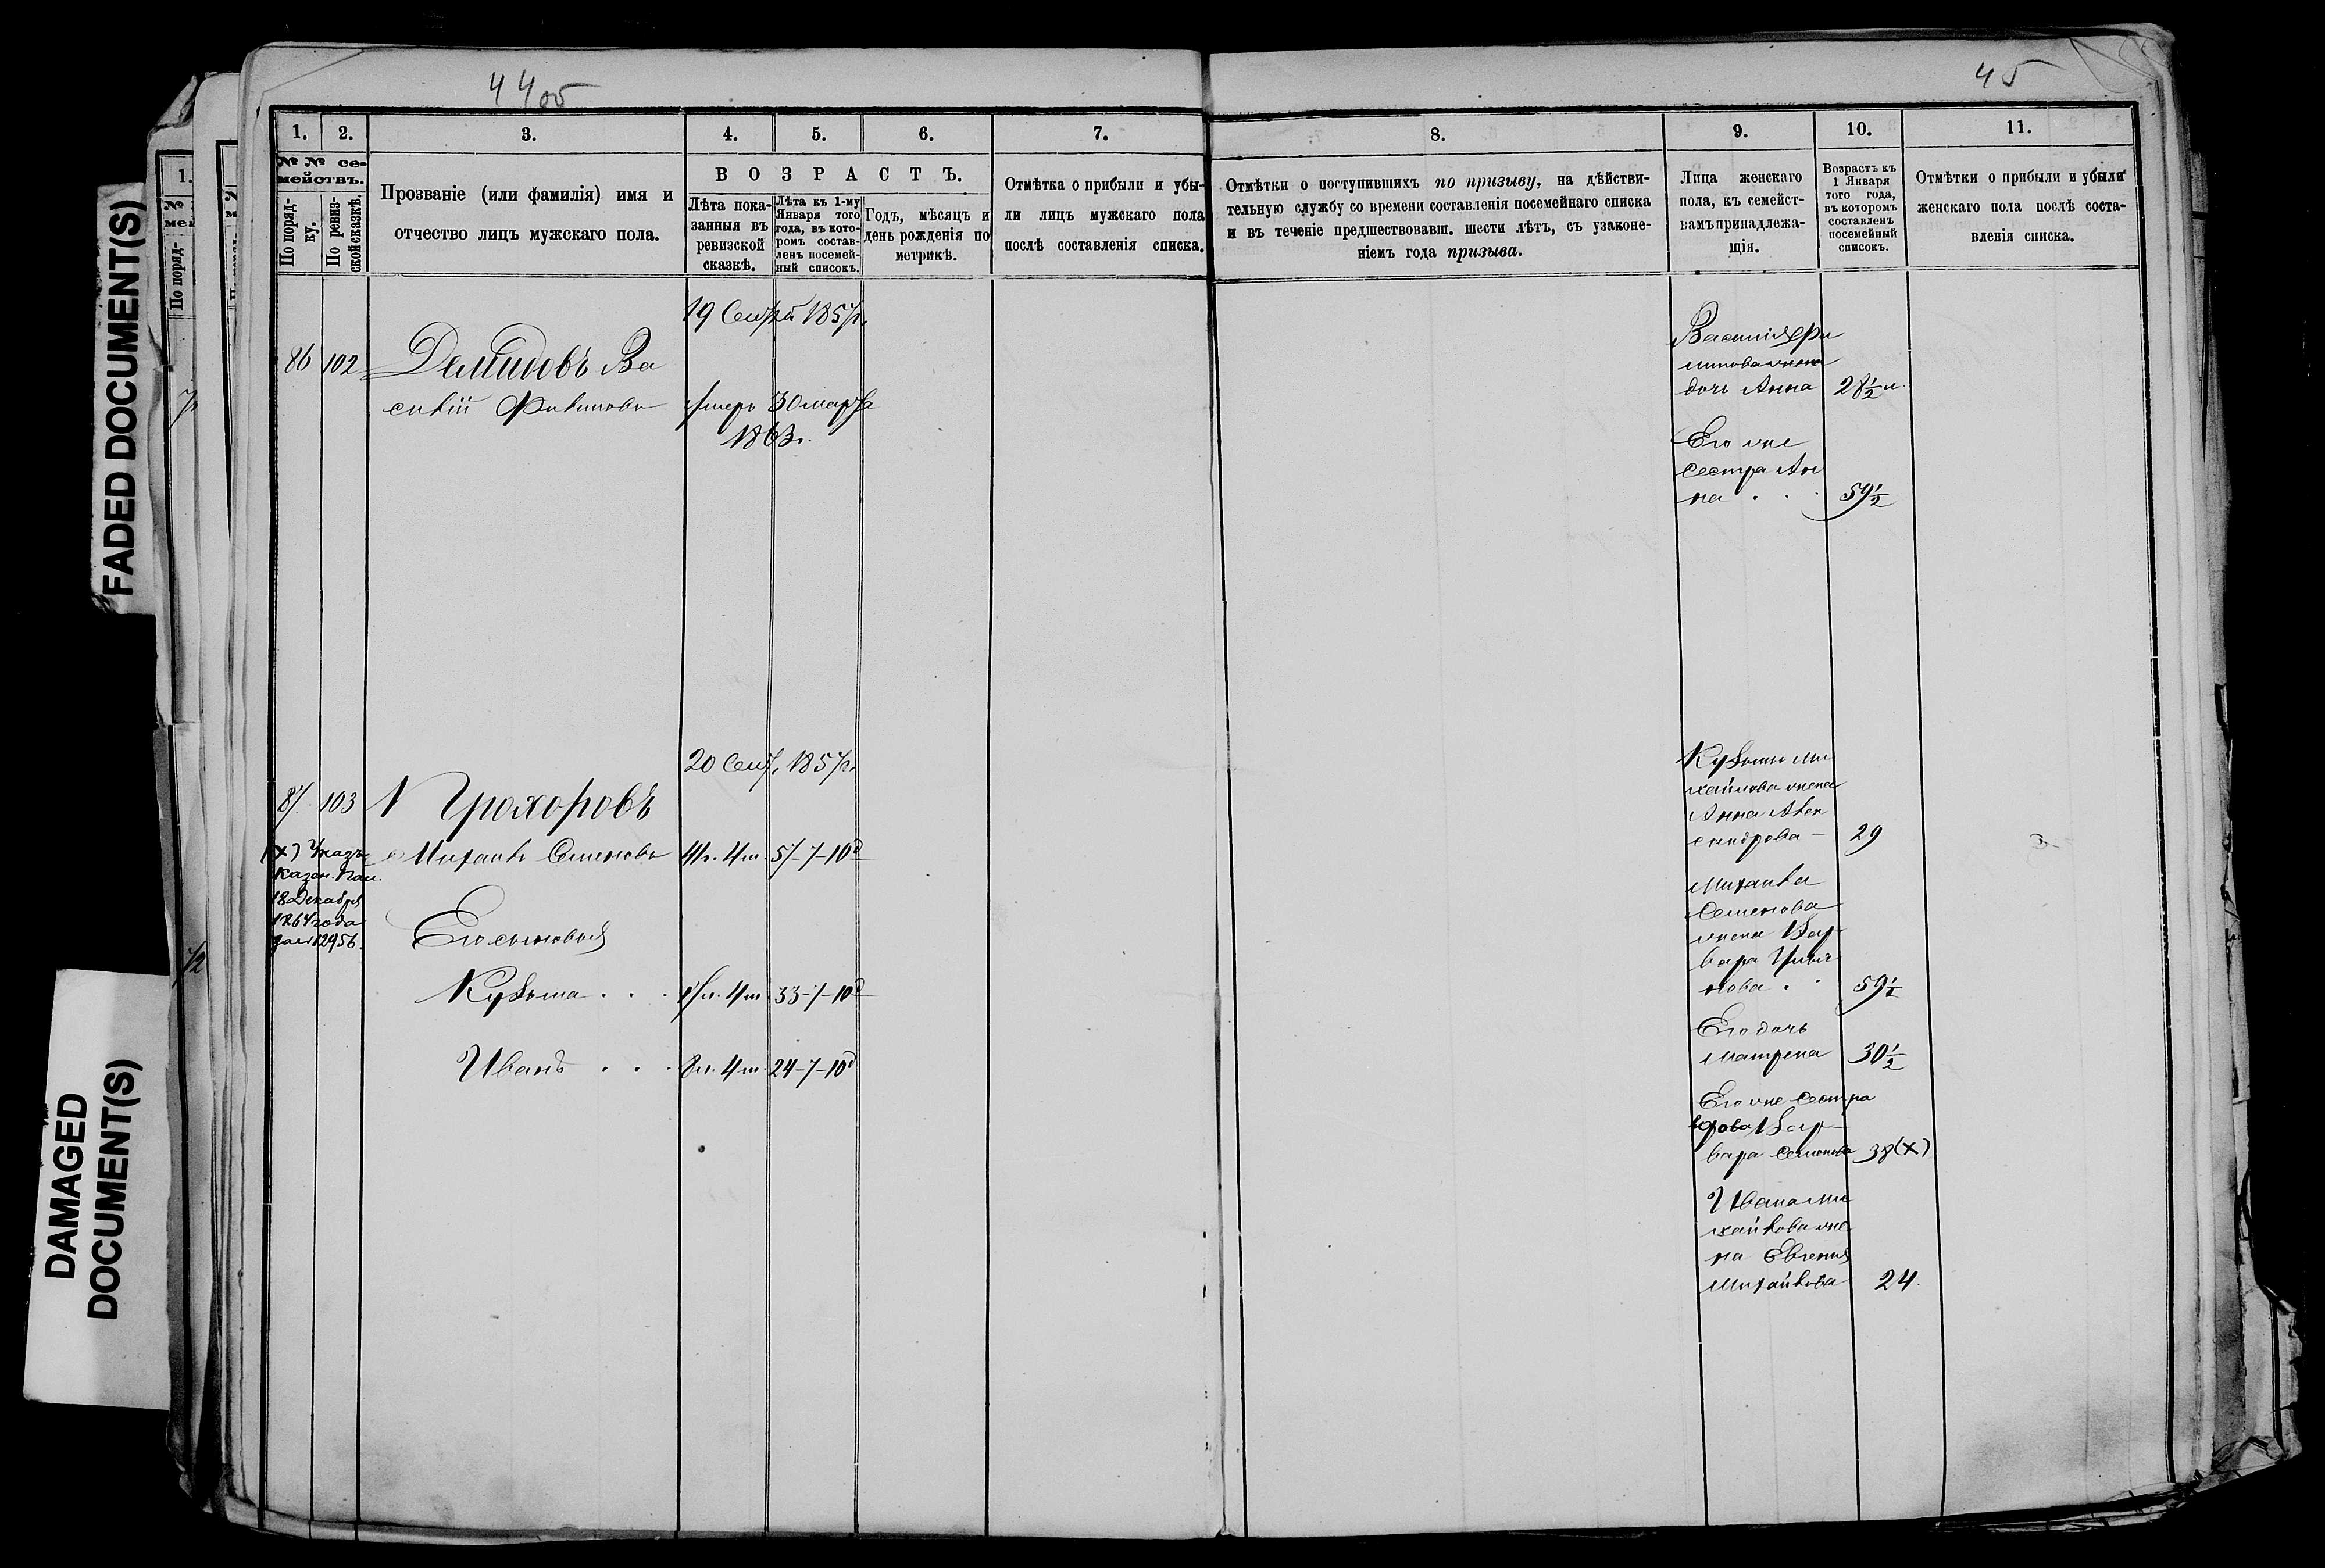 FADED DOCUMENT(S)
DAMAGED
DOCUMENT(S)
44об
45
1.
2.
3.
4.
5.
6.
7.
8.
9.
10.
11.
№ № се-
мействъ.
По поряд-
ку.
По ревиз-
ской сказкѣ.
Прозваніе (или фамилія) имя и
отчество лицъ мужскаго пола.
ВОЗРАСТЪ.
Лѣта пока-
занныя въ
ревизской
сказкѣ.
Лѣта къ 1-му
Января того
года, въ кото-
ромъ состав-
ленъ посемей-
ный списокъ.
Годъ, мѣсяцъ и
день рожденія по
метрикѣ.
Отмѣтка о прибыли и убы-
ли лицъ мужскаго пола
послѣ составленія списка.
Отмѣтки о поступившихъ по призыву, на дѣйстви-
тельную службу со времени составленія посемейнаго списка
и въ теченіе предшествовавш. шести лѣтъ, съ узаконе-
ніемъ года призыва.
Лица женскаго
пола, къ семейст-
вамъ принадлежа-
щія.
Возрастъ къ
1 Января
того года,
въ которомъ
составленъ
посемейный
списокъ.
Отмѣтки о прибыли и убыли
женскаго пола послѣ соста-
вленія списка.
19 Сент. 1857г.
86 102 Демидовъ Ва
силій Филиповъ умеръ 30 марта
1863г.
Василія Фи
липова
дочь Анна 28½
Его же
сестра Ан
на . . 59½
20 Сент. 1857г.
87. 103 Прохоровъ
(х) Указъ Михаилъ Семеновъ 41г. 4м. 57-7-10д
Казен. Пал.
18 Декабря
1864 года
за № 12956.
Его сыновья
Кузьма . . . 17л. 4м. 33-7-10д
Иванъ . . . 8л. 4м. 24-7-10д
Кузьмы Ми
хайлова жена
Анна Алек
сандрова - 29
Михаила
Семенова
жена Вар
вара
нова . . 59½
Его дочь
Матрена 30½
Его же сестра
вдова Вар-
вара Семенова 38 (х)
Ивана Ми
хайлова же
на Евгенія
Михайлова 24.